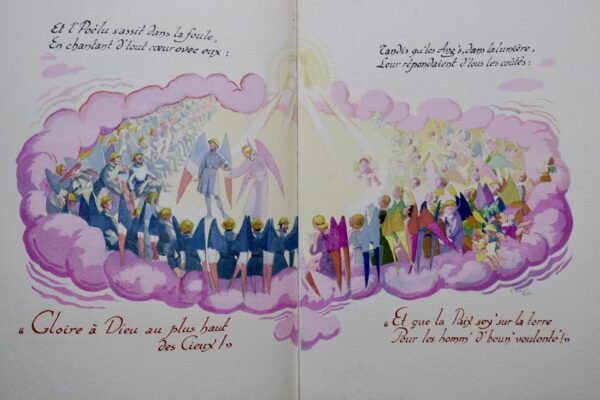 Et l'Poëlu s'assit dans la foule,
En chantant d'tout cœur avec eux :
Tandis qu'les Ang's, dans la lumière,
Leur répondaient d'tous les coûtés :
« Gloire à Dieu au plus haut
des Cieux ! »
« Et que la Paix sey' sur la terre
Pour les homm' d' boun' voulonté ! »